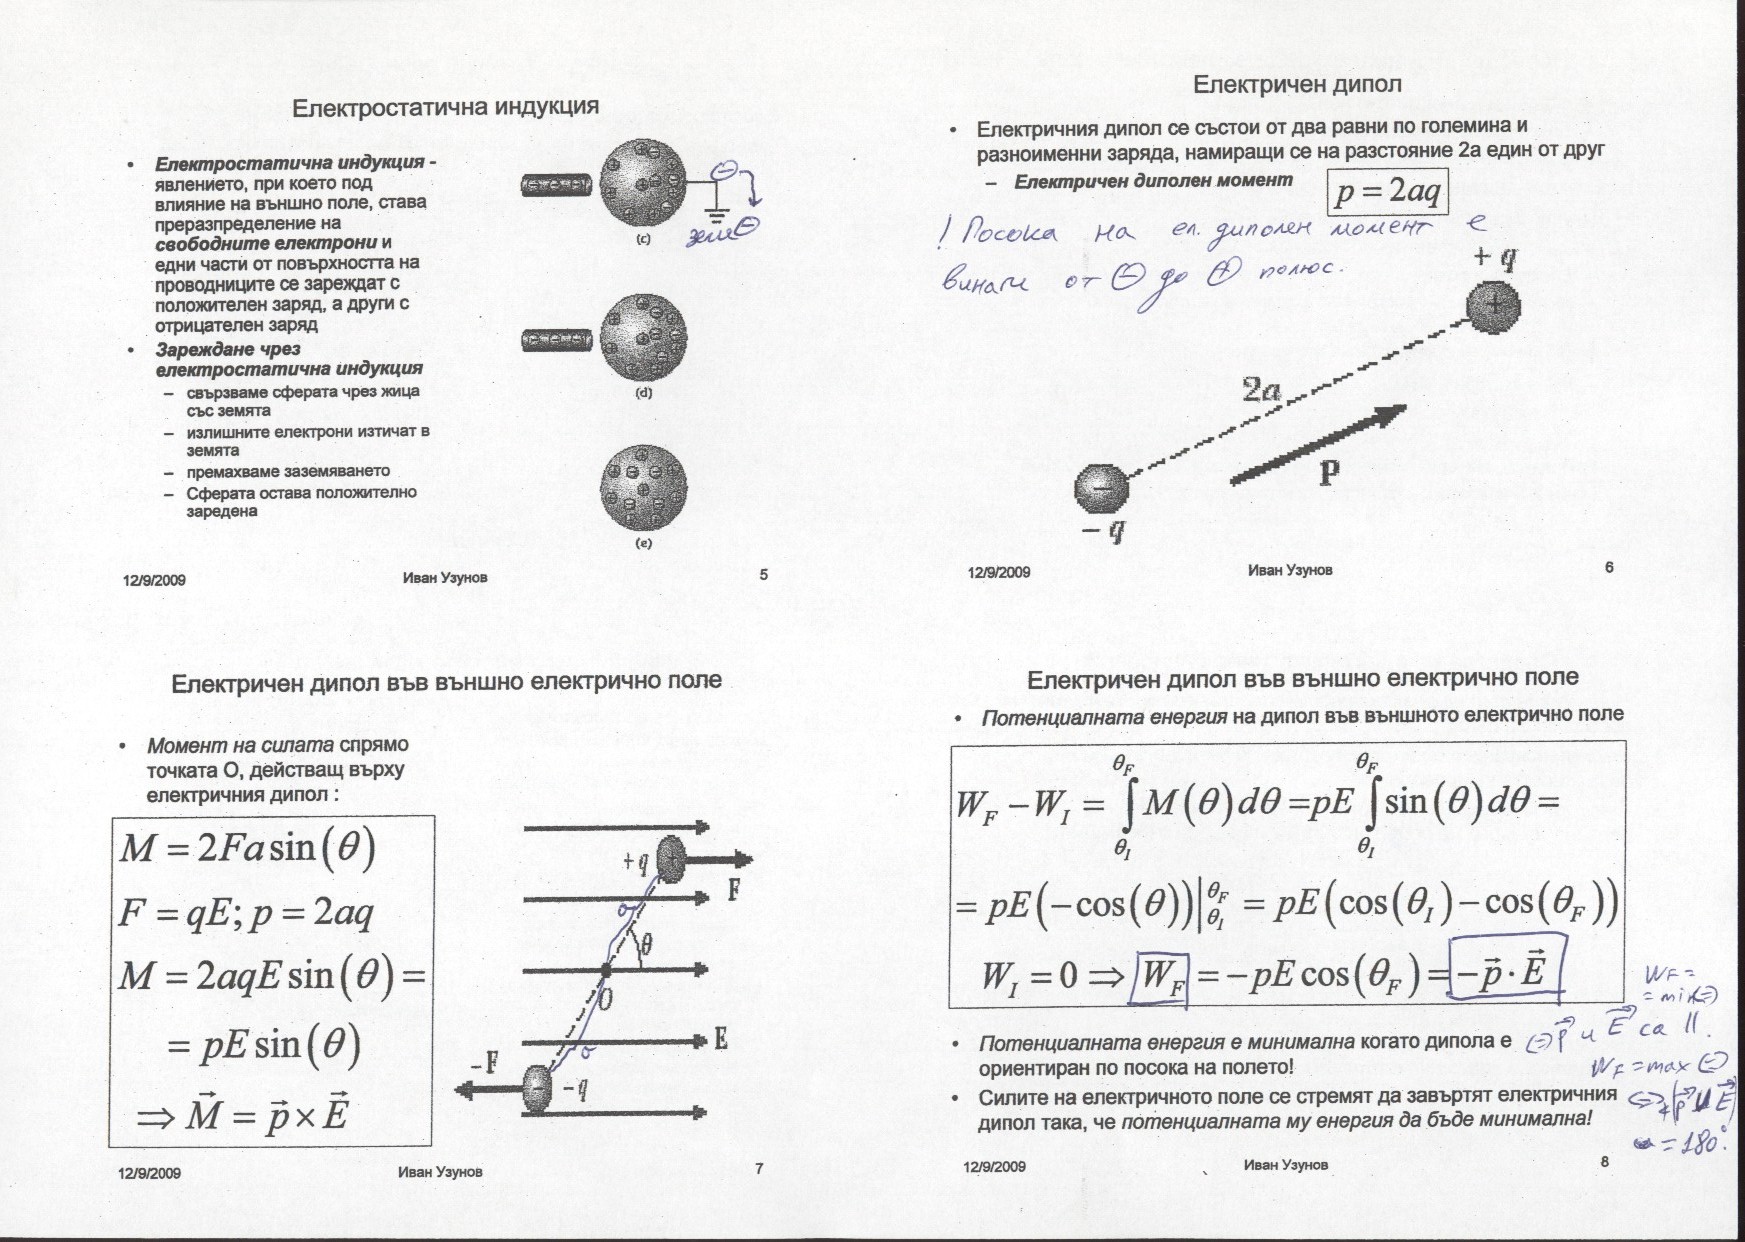 Електростатична индукция
• Електростатична индукция -
явлението, при което под
влияние на външно поле, става
преразпределение на
свободните електрони и
едни части от повърхността на
проводниците се зареждат с
положителен заряд, а други с
отрицателен заряд
• Зареждане чрез
електростатична индукция
– свързваме сферата чрез жица
със земята
– излишните електрони изтичат в
земята
– премахваме заземяването
– Сферата остава положително
заредена
(c)
(d)
(e)
12/9/2009 Иван Узунов 5
Електричен дипол
• Електричния дипол се състои от два равни по големина и
разноименни заряда, намиращи се на разстояние 2a един от друг
– Електричен диполен момент p = 2aq
! Посока на ел. диполен момент е
винаги от ⊖ до ⊕ полюс.
+ q
2a
P
– q
12/9/2009 Иван Узунов 6
Електричен дипол във външно електрично поле
• Момент на силата спрямо
точката O, действащ върху
електричния дипол :
M = 2Fa sin(θ)
F = qE; p = 2aq
M = 2aqE sin(θ) =
= pE sin(θ)
⇒ M⃗ = p⃗ × E⃗
+q
F
a
θ
O
a
E
-F
-q
12/9/2009 Иван Узунов 7
Електричен дипол във външно електрично поле
• Потенциалната енергия на дипол във външното електрично поле
W_F – W_I = ∫_{θ_I}^{θ_F} M(θ)dθ = pE ∫_{θ_I}^{θ_F} sin(θ)dθ =
= pE(–cos(θ))|_{θ_I}^{θ_F} = pE(cos(θ_I) – cos(θ_F))
W_I = 0 ⇒ W_F = –pE cos(θ_F) = –p⃗ · E⃗
W_F =
= min ⇔
⇔ p⃗ и E⃗ са ||.
• Потенциалната енергия е минимална когато дипола е
ориентиран по посока на полето!
W_F = max ⇔
• Силите на електричното поле се стремят да завъртят електричния
дипол така, че потенциалната му енергия да бъде минимална!
= 180°
12/9/2009 Иван Узунов 8